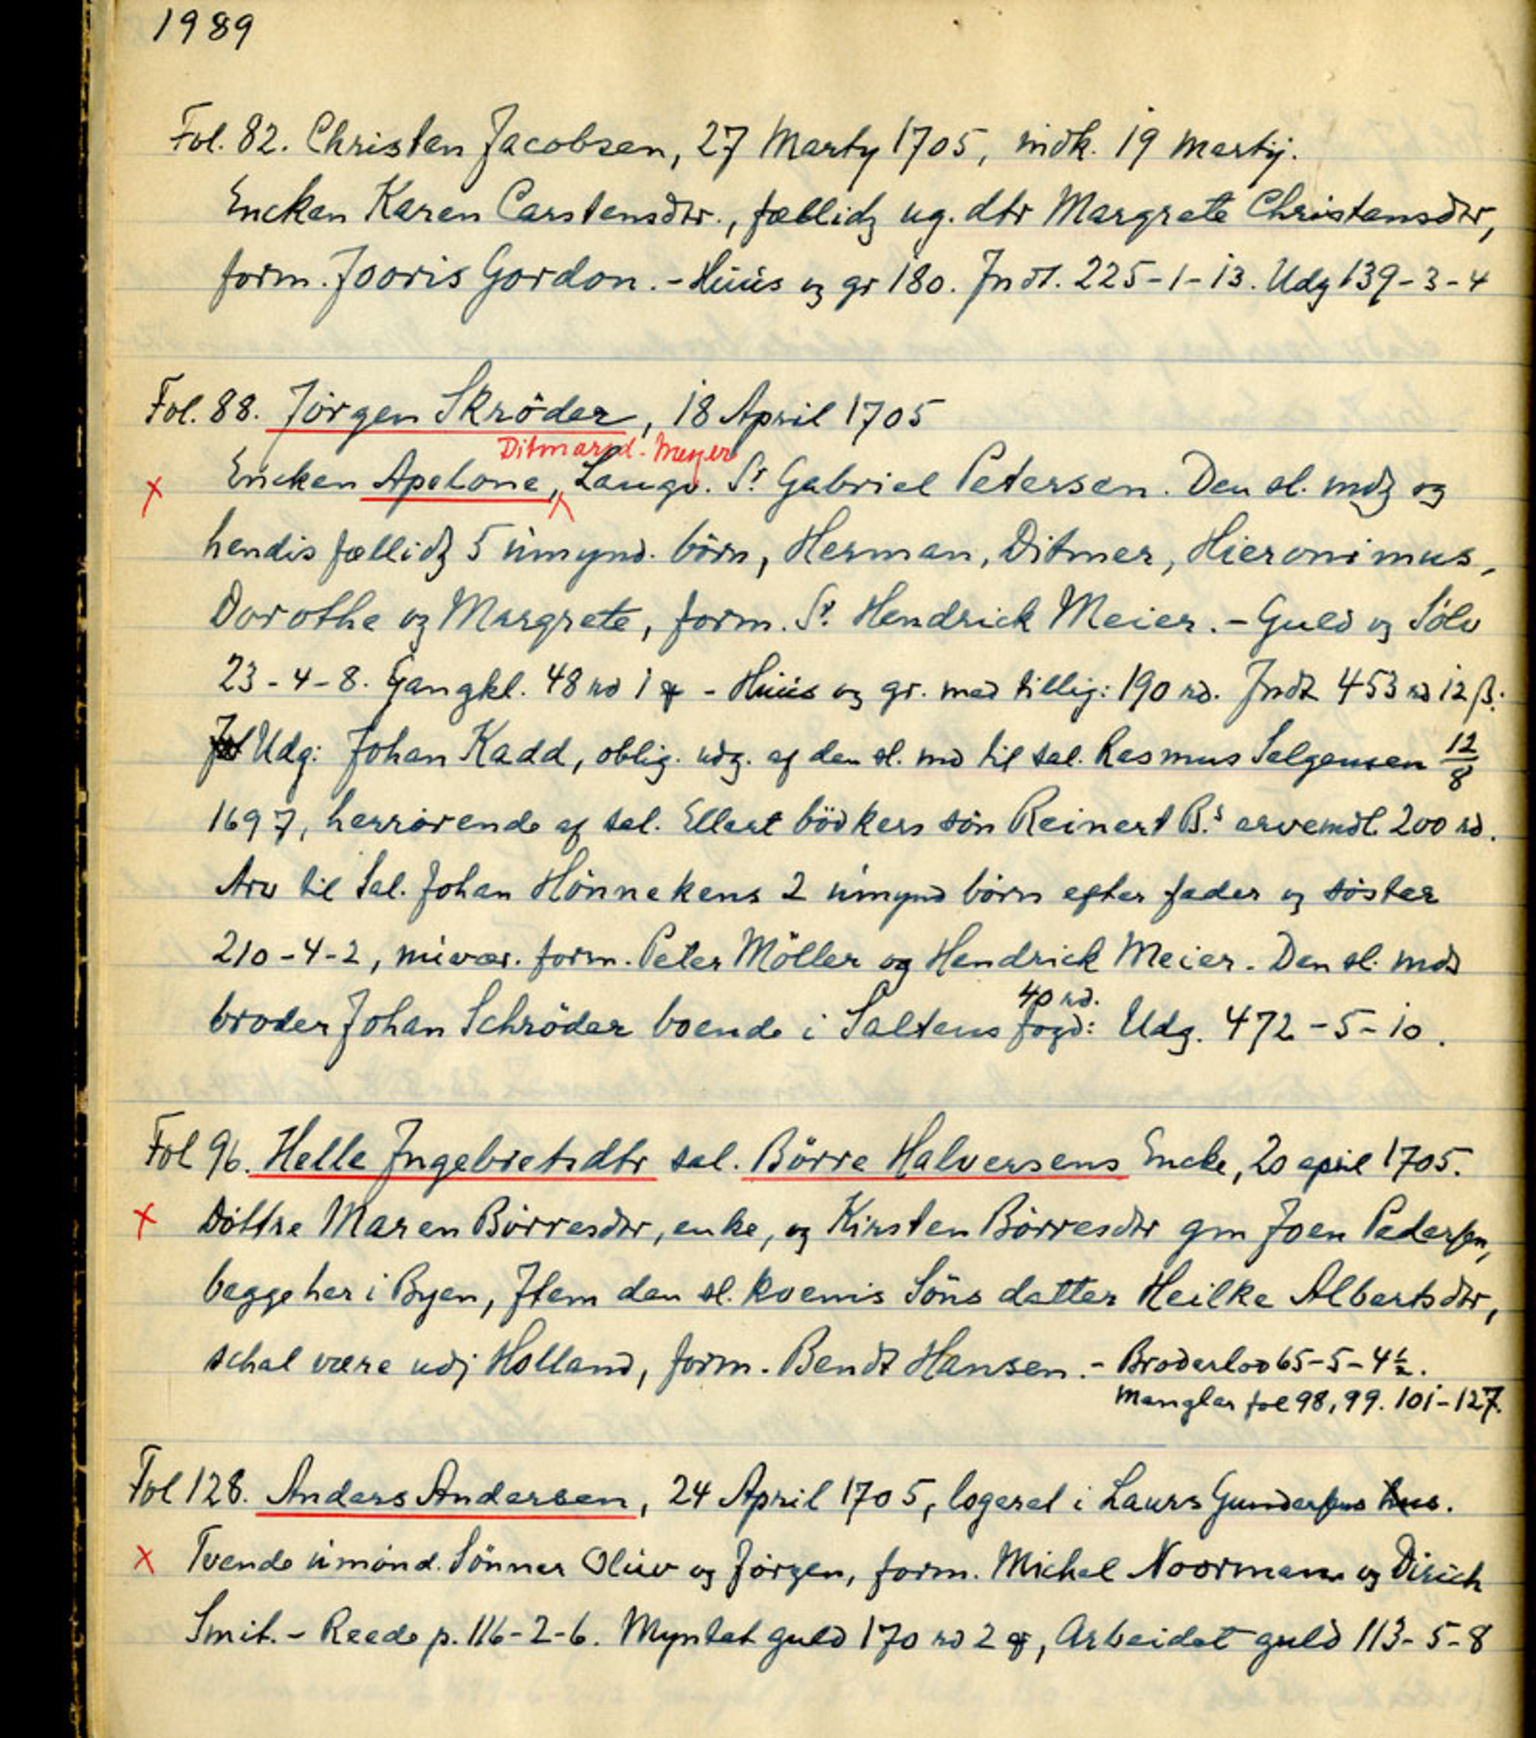 1989
Fol. 82. Christen Jacobsen, 27 Marty 1705, indk. 19 martij.
Encken Karen Carstensdtr., fællidz ug. dtr Margrete Christensdtr,
form. Jooris Gordon. - Huus og gr 180. Indt. 225-1-13. Udg 139-3-4
Fol. 88. Jørgen Skröder, 18 April 1705
Ditmarsd. Meyer
x Encken Apelone, Laugv. Sr. Gabriel Petersen. Den sl. mdz og
hendis fællidz 5 umynd. börn, Herman, Ditmer, Hieronimus,
Dorothe og Margrete, form. Sr. Hendrick Meier. - Guld og Sölv
23-4-8. Gangkl. 48 rd 1 - Huus og gr. med tillig: 190 rd. Indt 453 rd 12 ß.
Udg: Johan Kadd, oblig. udg. af den sl. md til sal. Rasmus Selgensen 12/8
1697, herrörende af sal. Ellert bödkers sön Reinert B.s arvemdl 200 rd.
Arv til Sal. Johan Hönnekens 2 umynd börn efter fader og söster
210-4-2, nuvær. form. Peter Möller og Hendrick Meier. Den sl. mds
40 rd.
broder Johan Schröder boende i Saltens fogd: Udg. 472-5-10.
Fol 96. Helle Ingebretsdtr sal. Börre Halversens Encke, 20 april 1705.
x Döttre Maren Börresdtr, enke, og Kirsten Börresdtr gm Joen Pedersen,
begge her i Byen, Item den sl. kvenis Söns datter Heilke Albertsdtr,
schal være udj Holland, form. Bendt Hansen. - Broderlod 65-5-4½.
Mangler fol 98, 99. 101-127.
Fol 128. Anders Andersen, 24 April 1705, logeret i Laurs Gundersens hus.
x Tvende umönd. Sönner Oluv og Jörgen, form. Michel Noorman og Dirich
Smit. - Reede p. 116-2-6. Myntet guld 170 rd 2, Arbeidet guld 113-5-8